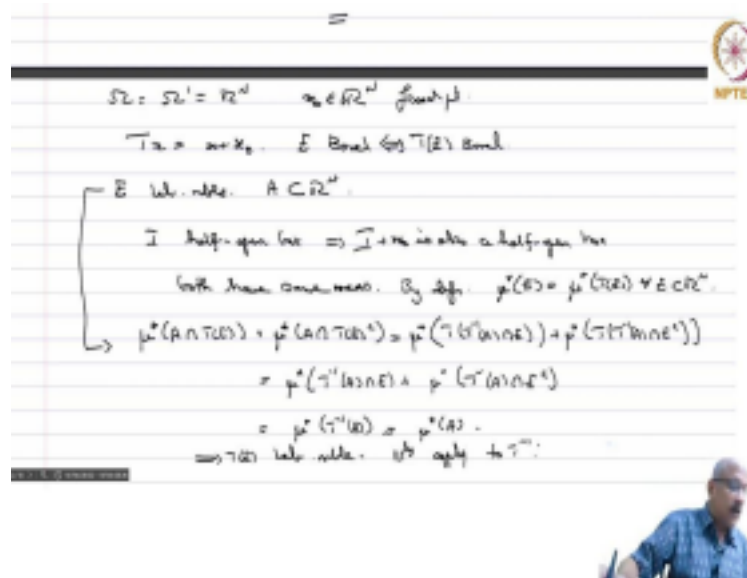 =
NPTEL
Ω = Ω' = ℝᴺ x₀ ∈ ℝᴺ fixed pt.
Tx = x + x₀. E Borel ⇔ T(E) Borel
E Leb. mble. A ⊂ ℝᴺ.
I half-open box ⇒ I + x₀ is also a half-open box
both have same meas. By defn. μ*(E) = μ*(T(E)) ∀ E ⊂ ℝᴺ.
μ*(A∩T(E)) + μ*(A∩T(E)ᶜ) = μ*(T(T⁻¹(A)∩E)) + μ*(T(T⁻¹(A)∩Eᶜ))
= μ*(T⁻¹(A)∩E) + μ*(T⁻¹(A)∩Eᶜ)
= μ*(T⁻¹(A)) = μ*(A).
⇒ T(E) Leb. mble. apply to T⁻¹.